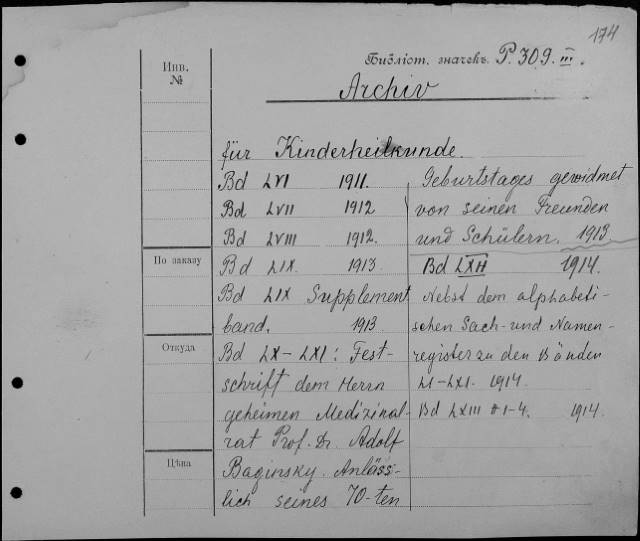 174
Библіот. значекъ P. 309. III.
Archiv
Инв.
№
По заказу
Откуда
Цѣна
für Kinderheilkunde.
Bd LVI 1911.
Bd LVII 1912
Bd LVIII 1912.
Bd LIX. 1913
Bd LIX Supplement
band. 1913
Bd LX–LXI: Fest-
schrift dem Herrn
geheimen Medizinal-
rat Prof. Dr. Adolf
Baginsky. Anläss-
lich seines 70-ten
Geburtstages gewidmet
von seinen Freunden
und Schülern. 1913
Bd LXII 1914.
Nebst dem alphabeti-
schen Sach- und Namen-
register zu den Bänden
LI–LXI. 1914.
Bd LXIII 1-4. 1914.